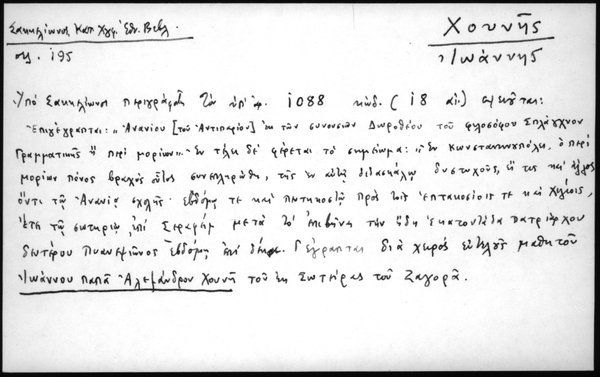 Σακκελίωνος Κατ. Χγφ. Ἐθν. Βιβλ.
Χουνῆς
σελ. 195
Ἰωάννης
Ὑπὸ Σακκελίωνος περιγράφεται τὸν ὑπ' ἀρ. 1088 κώδ. (18 αἰ.) σημειοῦται:
Ἐπιγέγραπται: „Ἀνανίου [τοῦ Ἀντιπαρίου] ἐκ τῶν συνουσιῶν Δωροθέου τοῦ φιλοσόφου Σπλάγχνον
Γραμματικῆς ἢ περὶ μορίων". Ἐν τέλει δὲ φέρεται τὸ σημείωμα: „Ἐν Κωνσταντινουπόλει, ὁ περὶ
μορίων πόνος βραχὺς οὗτος συνεπληρώθη, τῆς ἐν αὐτῇ διδασκάλῳ δυστυχοῦς, εἴ τις καὶ ἄλλος
ὄντι τῷ Ἀνανίᾳ σχολῆς· ἑβδόμῳ τε καὶ πεντηκοστῷ πρὸς τοῖς ἑπτακοσίοις τε καὶ χιλίοις,
ἔτει τῷ σωτηρίῳ, ἐπὶ Σεραφεὶμ μετὰ τὸ ἐπιβῆναι τὴν ἤδη ἑκατοντάδα πατριάρχου
δευτέρου Πυανεψιῶνος ἑβδόμῃ ἐπὶ δέκα. Γέγραπται διὰ χειρὸς εὐτελοῦς μαθητοῦ
Ἰωάννου παπᾶ Ἀλεξάνδρου Χουνῆ τοῦ ἐκ Σωτήρας τοῦ Ζαγορᾶ.